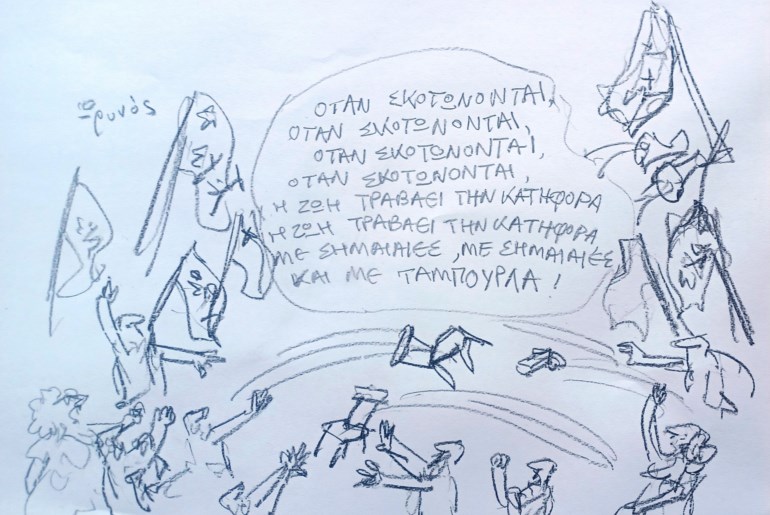 Θρυνός
ΟΤΑΝ ΣΚΟΤΩΝΟΝΤΑΙ,
ΟΤΑΝ ΣΚΟΤΩΝΟΝΤΑΙ,
ΟΤΑΝ ΣΚΟΤΩΝΟΝΤΑΙ,
ΟΤΑΝ ΣΚΟΤΩΝΟΝΤΑΙ,
Η ΖΩΗ ΤΡΑΒΑΕΙ ΤΗΝ ΚΑΤΗΦΟΡΑ
Η ΖΩΗ ΤΡΑΒΑΕΙ ΤΗΝ ΚΑΤΗΦΟΡΑ
ΜΕ ΣΗΜΑΙΑΙΕΣ, ΜΕ ΣΗΜΑΙΑΙΕΣ
ΚΑΙ ΜΕ ΤΑΜΠΟΥΡΛΑ!